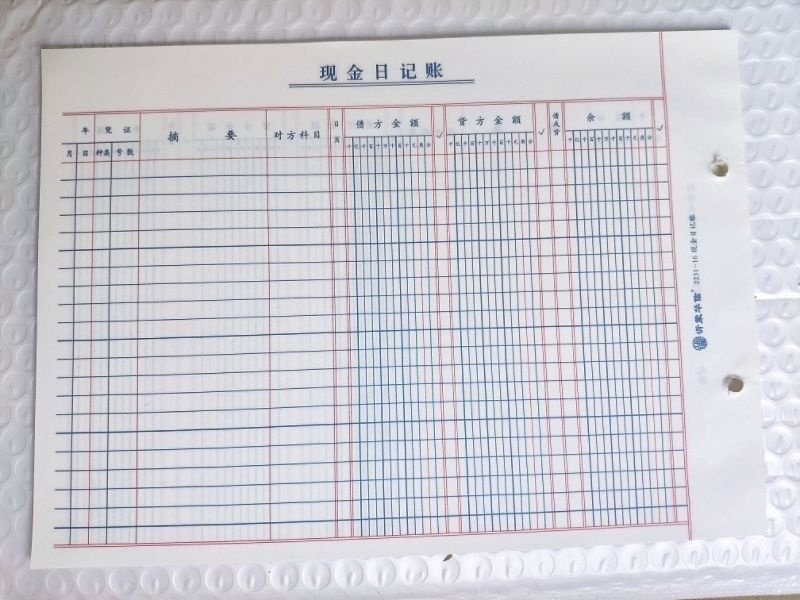 现金日记账
年 凭证 摘要 对方科目 日页 借方金额 ✓ 贷方金额 ✓ 借或贷 余额 ✓
月 日 种类 号数 十亿千百十万千百十元角分 十亿千百十万千百十元角分 十亿千百十万千百十元角分
2231-16 现金日记账